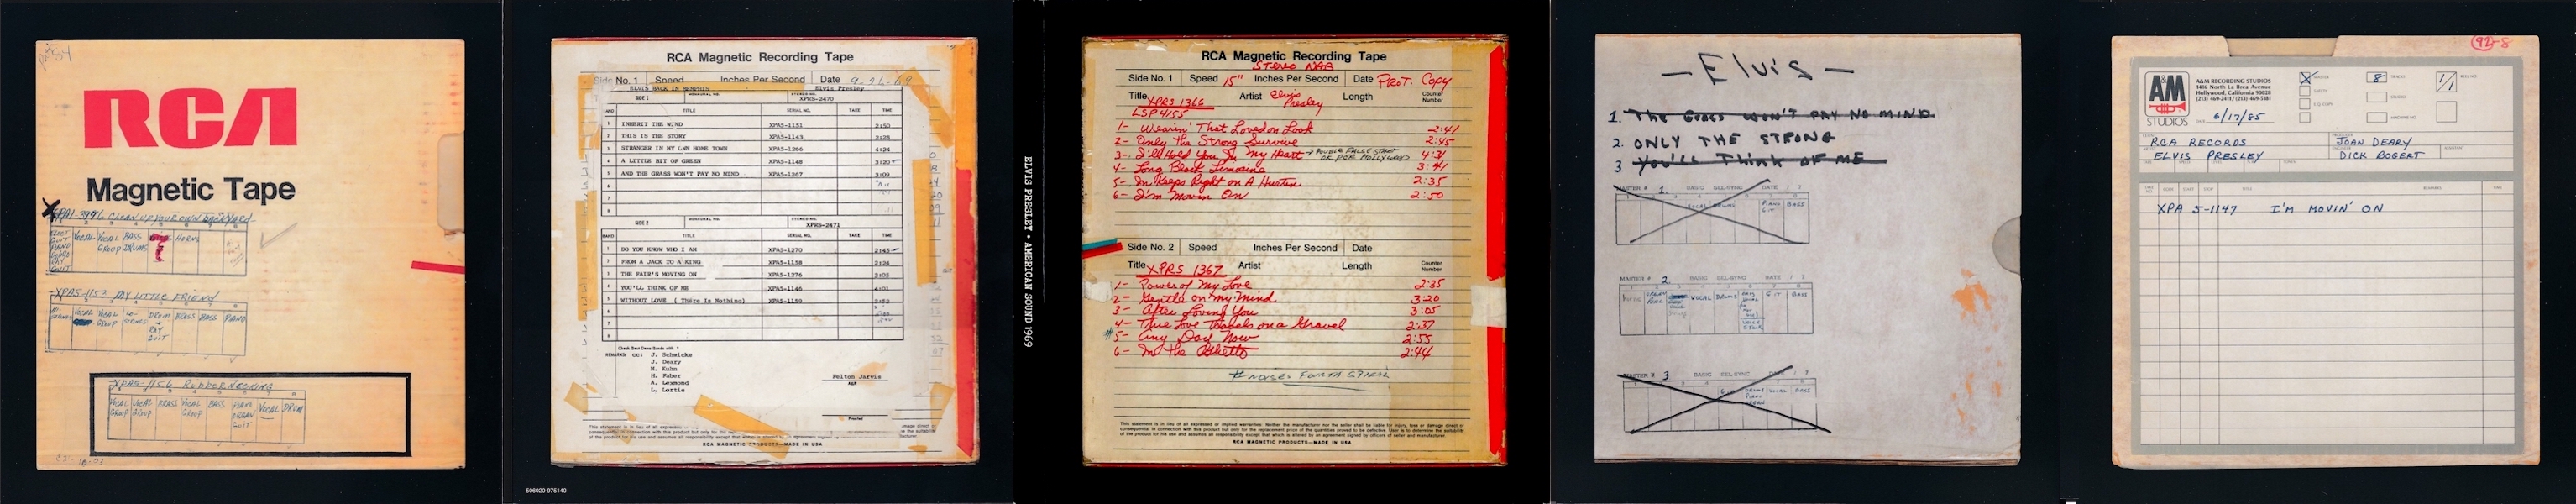 RCA
Magnetic Tape
XPA1-3976 CLEAN UP YOUR OWN BACKYARD
VOCAL VOCAL GROUP BASS DRUMS HORNS
XPAS-1153 MY LITTLE FRIEND
VOCAL VOCAL GROUP DRUM BRASS BASS PIANO
XPAS-1156 RUBBERNECKING
VOCAL GROUP VOCAL GROUP BRASS VOCAL GROUP BASS PIANO ORGAN GUIT VOCAL DRUM
RCA Magnetic Recording Tape
Side No. 1 Speed Inches Per Second Date 9-26-69
ELVIS BACK IN MEMPHIS Elvis Presley
SIDE 1 XPRS-2470
BAND TITLE SERIAL NO. TAKE TIME
1 INHERIT THE WIND XPAS-1151 2:50
2 THIS IS THE STORY XPAS-1143 2:28
3 STRANGER IN MY OWN HOME TOWN XPAS-1266 4:24
4 A LITTLE BIT OF GREEN XPAS-1148 3:20
5 AND THE GRASS WON'T PAY NO MIND XPAS-1267 3:09
6
7
8
SIDE 2 XPRS-2471
BAND TITLE SERIAL NO. TAKE TIME
1 DO YOU KNOW WHO I AM XPAS-1270 2:45
2 FROM A JACK TO A KING XPAS-1158 2:24
3 THE FAIR'S MOVING ON XPAS-1276 3:05
4 YOU'LL THINK OF ME XPAS-1146 4:01
5 WITHOUT LOVE ( There Is Nothing) XPAS-1159 2:52
6
7
8
REMARKS: CC: J. Schwicke
J. Deary
M. Kuhn
H. Faber
A. Lexmond
L. Lortie
Felton Jarvis
A&R
RCA MAGNETIC PRODUCTS—MADE IN USA
506020-975140
ELVIS PRESLEY • AMERICAN SOUND 1969
RCA Magnetic Recording Tape
Stereo NAB
Side No. 1 Speed 15" Inches Per Second Date PROT. Copy
Title XPRS 1366 Artist Elvis Presley Length Counter Number
LSP 4155
1- Wearin' That Loved on Look 2:41
2- Only the Strong Survive 2:45
3- I'll Hold You In My Heart → DOUBLE FALSE START OK PER HOLLYWOOD 4:31
4- Long Black Limosine 3:41
5- It Keeps Right on A Hurtin 2:35
6- I'm Movin On 2:50
Side No. 2 Speed Inches Per Second Date
Title XPRS 1367 Artist Length Counter Number
1- Power of My Love 2:35
2- Gentle on My Mind 3:20
3- After Loving You 3:05
4- True Love Travels on a Gravel 2:37
#5- Any Day Now 2:55
6- In the Ghetto 2:44
# NOISE FORTH SPIRAL
RCA MAGNETIC PRODUCTS—MADE IN USA
— Elvis —
1. The GRASS WON'T PAY NO MIND
2. ONLY THE STRONG
3 You'll Think OF ME
MASTER # 1. BASIC SEL-SYNC DATE
VOCAL DRUMS PIANO GIT BASS
MASTER # 2. BASIC SEL-SYNC DATE
VOCAL DRUMS GIT BASS
MASTER # 3 BASIC SEL-SYNC DATE
VOCAL BASS
92-8
A&M STUDIOS
A&M RECORDING STUDIOS
1416 North La Brea Avenue
Hollywood, California 90028
(213) 469-2411 / (213) 469-5181
X MASTER
8 TRACKS
1/1 REEL NO.
DATE 6/17/85
RCA RECORDS JOAN DEARY
ELVIS PRESLEY DICK BOGERT
TITLE REMARKS TIME
XPA 5-1147 I'M MOVIN' ON